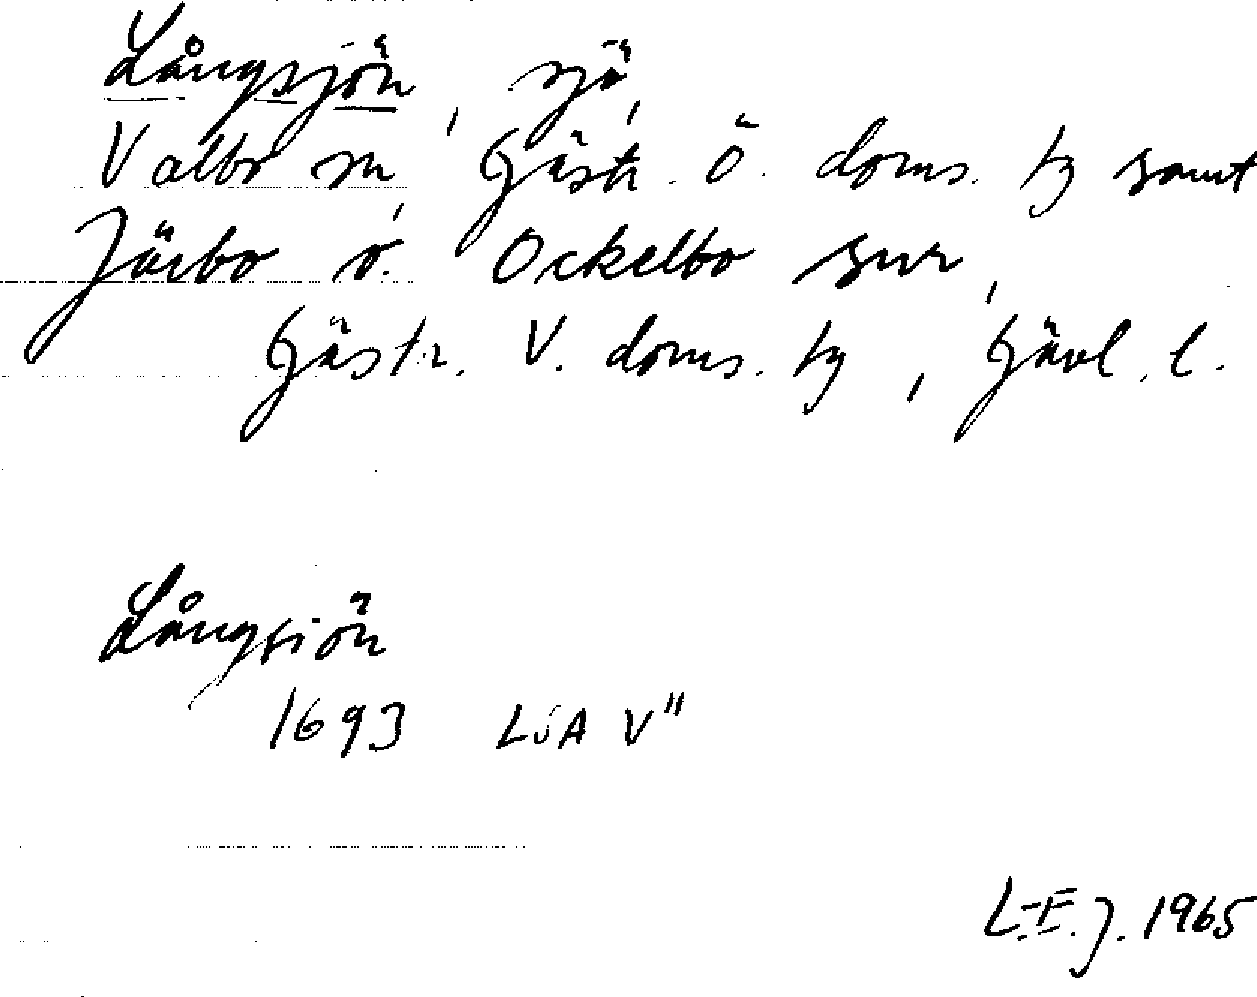 Långsjön, sjö,
Valbo sn, Gästr. Ö. doms. tg samt
Järbo o. Ockelbo snr,
Gästr. V. doms. tg, Gävl. l.
Långsiön
1693 LSA V"
L-E. J. 1965